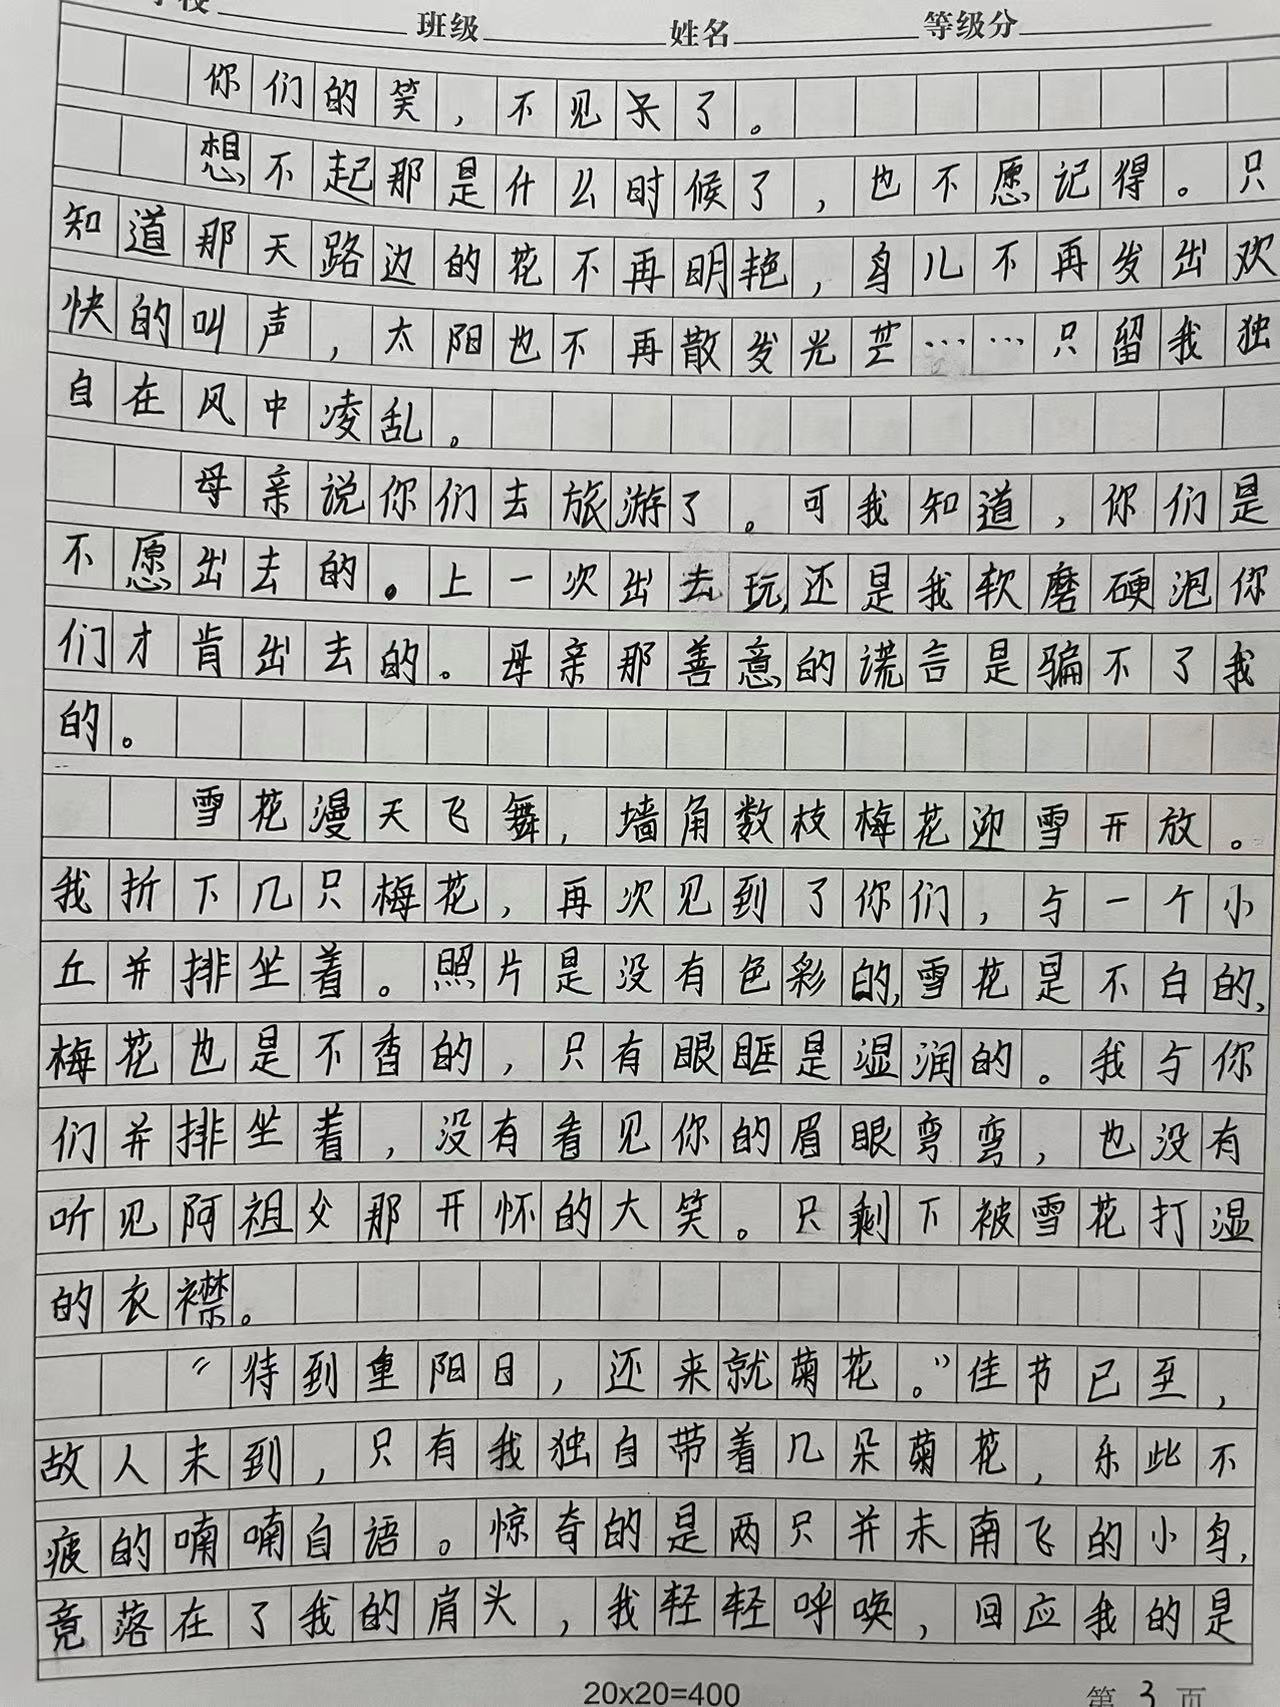 班级 姓名 等级分
你们的笑，不见了。
想不起那是什么时候了，也不愿记得。只
知道那天路边的花不再明艳，鸟儿不再发出欢
快的叫声，太阳也不再散发光芒……只留我独
自在风中凌乱。
母亲说你们去旅游了。可我知道，你们是
不愿出去的。上一次出去玩，还是我软磨硬泡你
们才肯出去的。母亲那善意的谎言是骗不了我
的。
雪花漫天飞舞，墙角数枝梅花迎雪开放。
我折下几只梅花，再次见到了你们，与一个小
丘并排坐着。照片是没有色彩的，雪花是不白的，
梅花也是不香的，只有眼眶是湿润的。我与你
们并排坐着，没有看见你的眉眼弯弯，也没有
听见阿祖父那开怀的大笑。只剩下被雪花打湿
的衣襟。
“待到重阳日，还来就菊花。”佳节已至，
故人未到，只有我独自带着几朵菊花，乐此不
疲的喃喃自语。惊奇的是两只并未南飞的小鸟，
竟落在了我的肩头，我轻轻呼唤，回应我的是
20x20=400
第 3 页